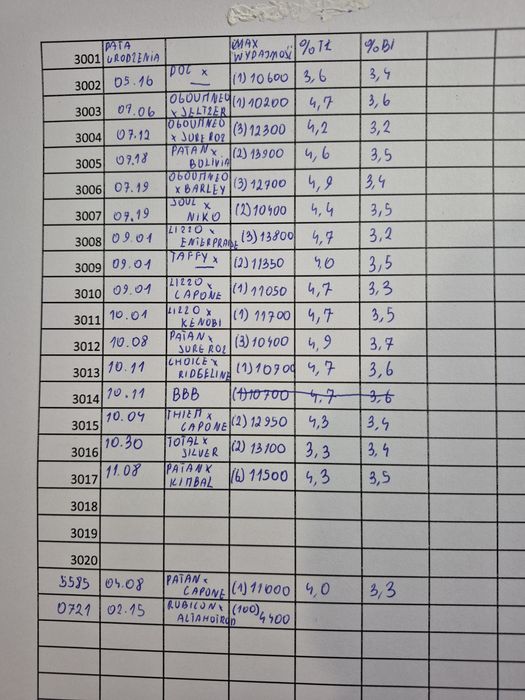 3001 DATA URODZENIA MAX WYDAJNOŚĆ % TŁ % BI
3002 05.16 DOC x — (1) 10600 3,6 3,4
3003 07.06 OGOUMNEO x SELTZER (1) 10200 4,7 3,6
3004 07.12 OGOUMNEO x SUREROZ (3) 12300 4,2 3,2
3005 07.18 PATAN x BOLIVIA (2) 13900 4,6 3,5
3006 07.19 OGOUMNEO x BARLEY (3) 12700 4,9 3,4
3007 07.19 SOUL x NIKO (2) 10400 4,4 3,5
3008 09.01 LIZZO x (3) 13800 4,7 3,2
3009 09.01 TAFFY x — (2) 11350 4,0 3,5
3010 09.01 LIZZO x CAPONE (1) 11050 4,7 3,3
3011 10.01 LIZZO x KENOBI (1) 11700 4,7 3,5
3012 10.08 PATAN x SUREROZ (3) 10400 4,9 3,7
3013 10.11 CHOICE x RIDGELINE (1) 10700 4,7 3,6
3014 10.11 BBB (1) 10700 4,7 3,6
3015 10.04 THIEM x CAPONE (2) 12950 4,3 3,4
3016 10.30 TOTAL x SILVER (2) 13100 3,3 3,4
3017 11.08 PATAN x KIMBAL (6) 11500 4,3 3,5
3018
3019
3020
5585 04.08 PATAN x CAPONE (1) 11000 4,0 3,3
0721 02.15 RUBICON x (100) 4400